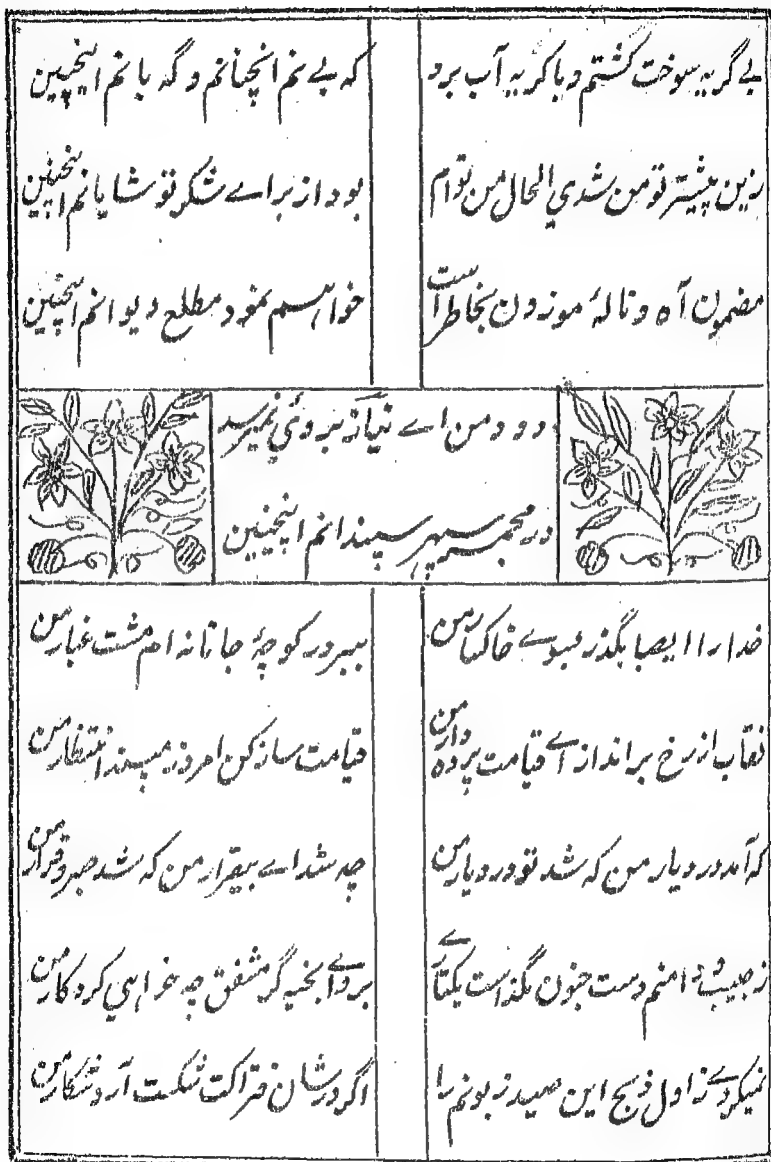 بے گریہ سوخت کشتم و با گریہ آب برد
کہ بے نم انچنانم و گہ با نم اینچنین
زین پیشتر تو من شدی الحال من توام
بود از براے شکر تو شایانم اینچنین
مضمون آہ و نالۂ موزون بخاطر است
خواہم نمود مطلع دیوانم اینچنین
دود من اے نیاز بروئی نمیرسد
در مجمر سپہر سپندانم اینچنین
خدارا ایصبا بگذر بسوے خاکسار من
ببر در کوچۂ جانانہ ام مشت غبار من
نقاب از رخ بر انداز اے قیامت پردہ دار من
قیامت ساز کن امروز مپسند انتظار من
کہ آمد در دیار من کہ شد تو در دیار من
چہ شد اے بیقرار من کہ شد صبر و قرار من
ز جیب و دامنم دست جنون نگذاست یکتاے
برو اے بخیہ گر مشفق چہ خواہی کرد کار من
نمیکردے ز اول ذبح این صید زبونم را
اگر در شان فتراکت شکست آرد شکار من